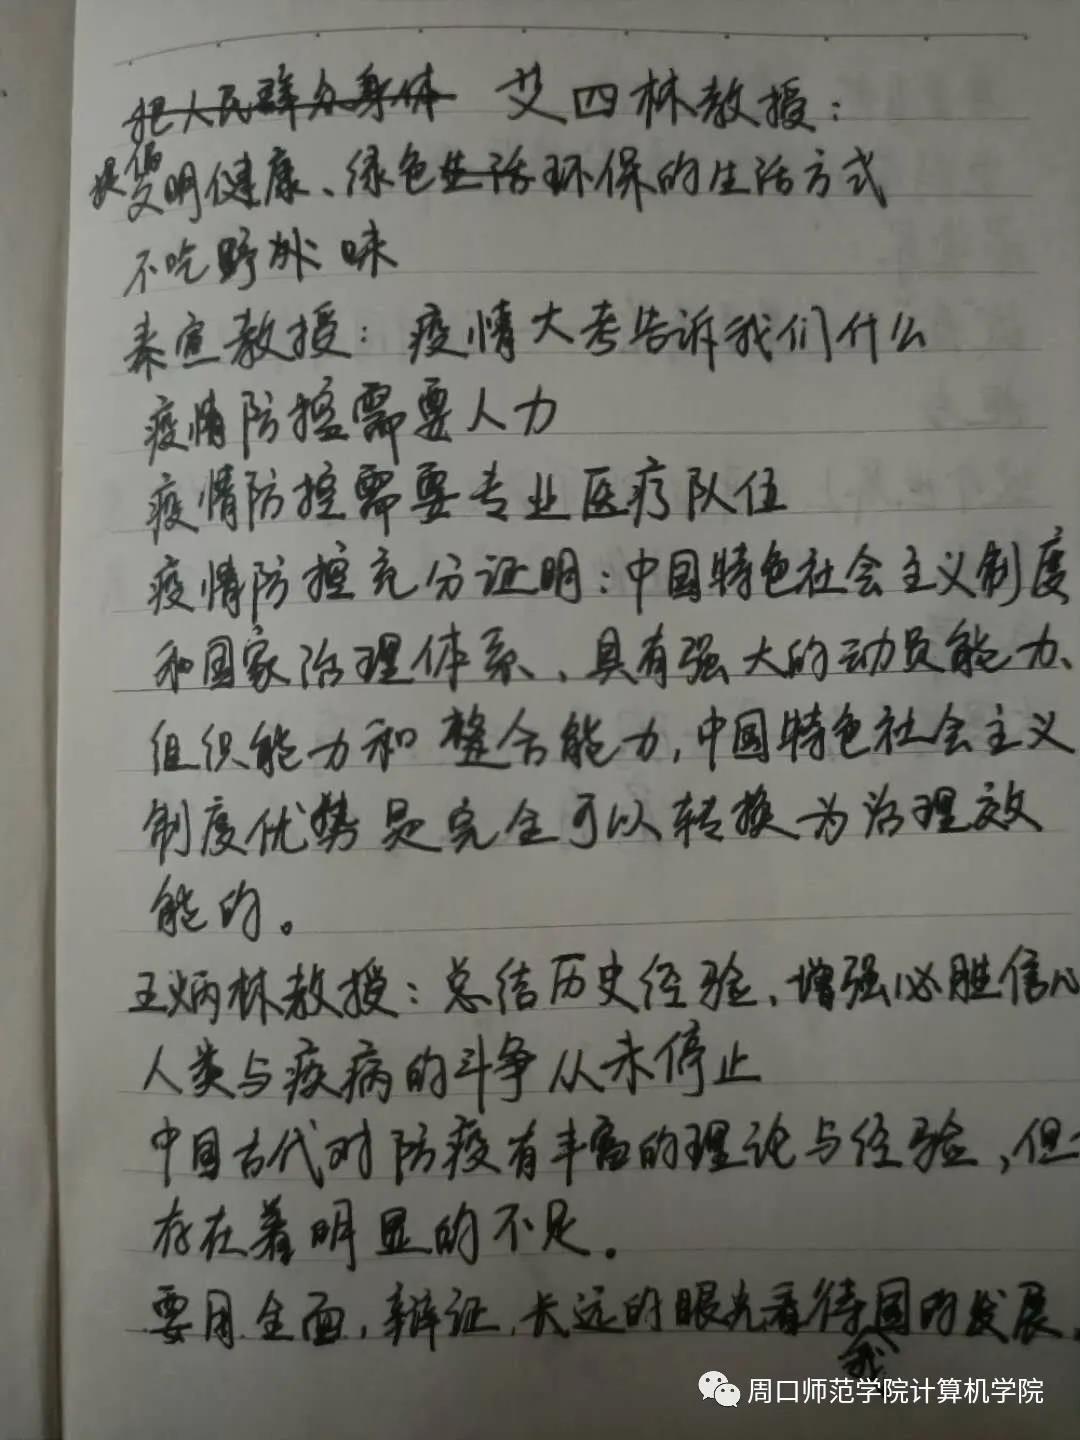 把人民群众身体 艾四林教授：
提倡文明健康、绿色生活环保的生活方式
不吃野外味
秦宣教授：疫情大考告诉我们什么
疫情防控需要人力
疫情防控需要专业医疗队伍
疫情防控充分证明：中国特色社会主义制度
和国家治理体系、具有强大的动员能力、
组织能力和整合能力，中国特色社会主义
制度优势是完全可以转换为治理效
能的。
王炳林教授：总结历史经验、增强必胜信心
人类与疾病的斗争从未停止
中国古代对防疫有丰富的理论与经验，但
存在着明显的不足。
要用全面，辩证，长远的眼光看待我国的发展，
周口师范学院计算机学院